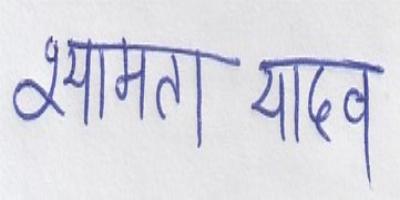 श्यामता यादव